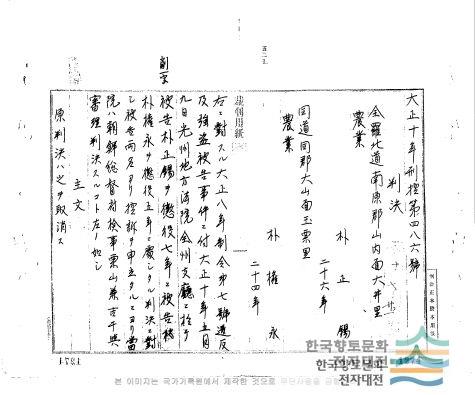 大正十年刑控第四八六號
判決
全羅北道南原郡山內面大井里
農業
朴正錫
二十六年
同道同郡大山面玉栗里
農業
朴權永
二十四年
裁判用紙
右ニ對スル大正八年制令第七號違反
及強盜被告事件ニ付大正十年五月
九日光州地方法院全州支廳ニ於テ
被告朴正錫ヲ懲役七年ニ被告
朴權永ヲ懲役五年ニ處シタル判決ニ對
シ被告兩名ヨリ控訴ヲ申立タルニヨリ當
院ハ朝鮮總督府檢事栗山兼吉干與
審理判決スルコト左ノ如シ
主文
原判決ハ之ヲ取消ス
한국향토문화
전자대전
한국향토문화
전자대전
본 이미지는 국가기록원에서 제작한 것으로 무단사용을 금